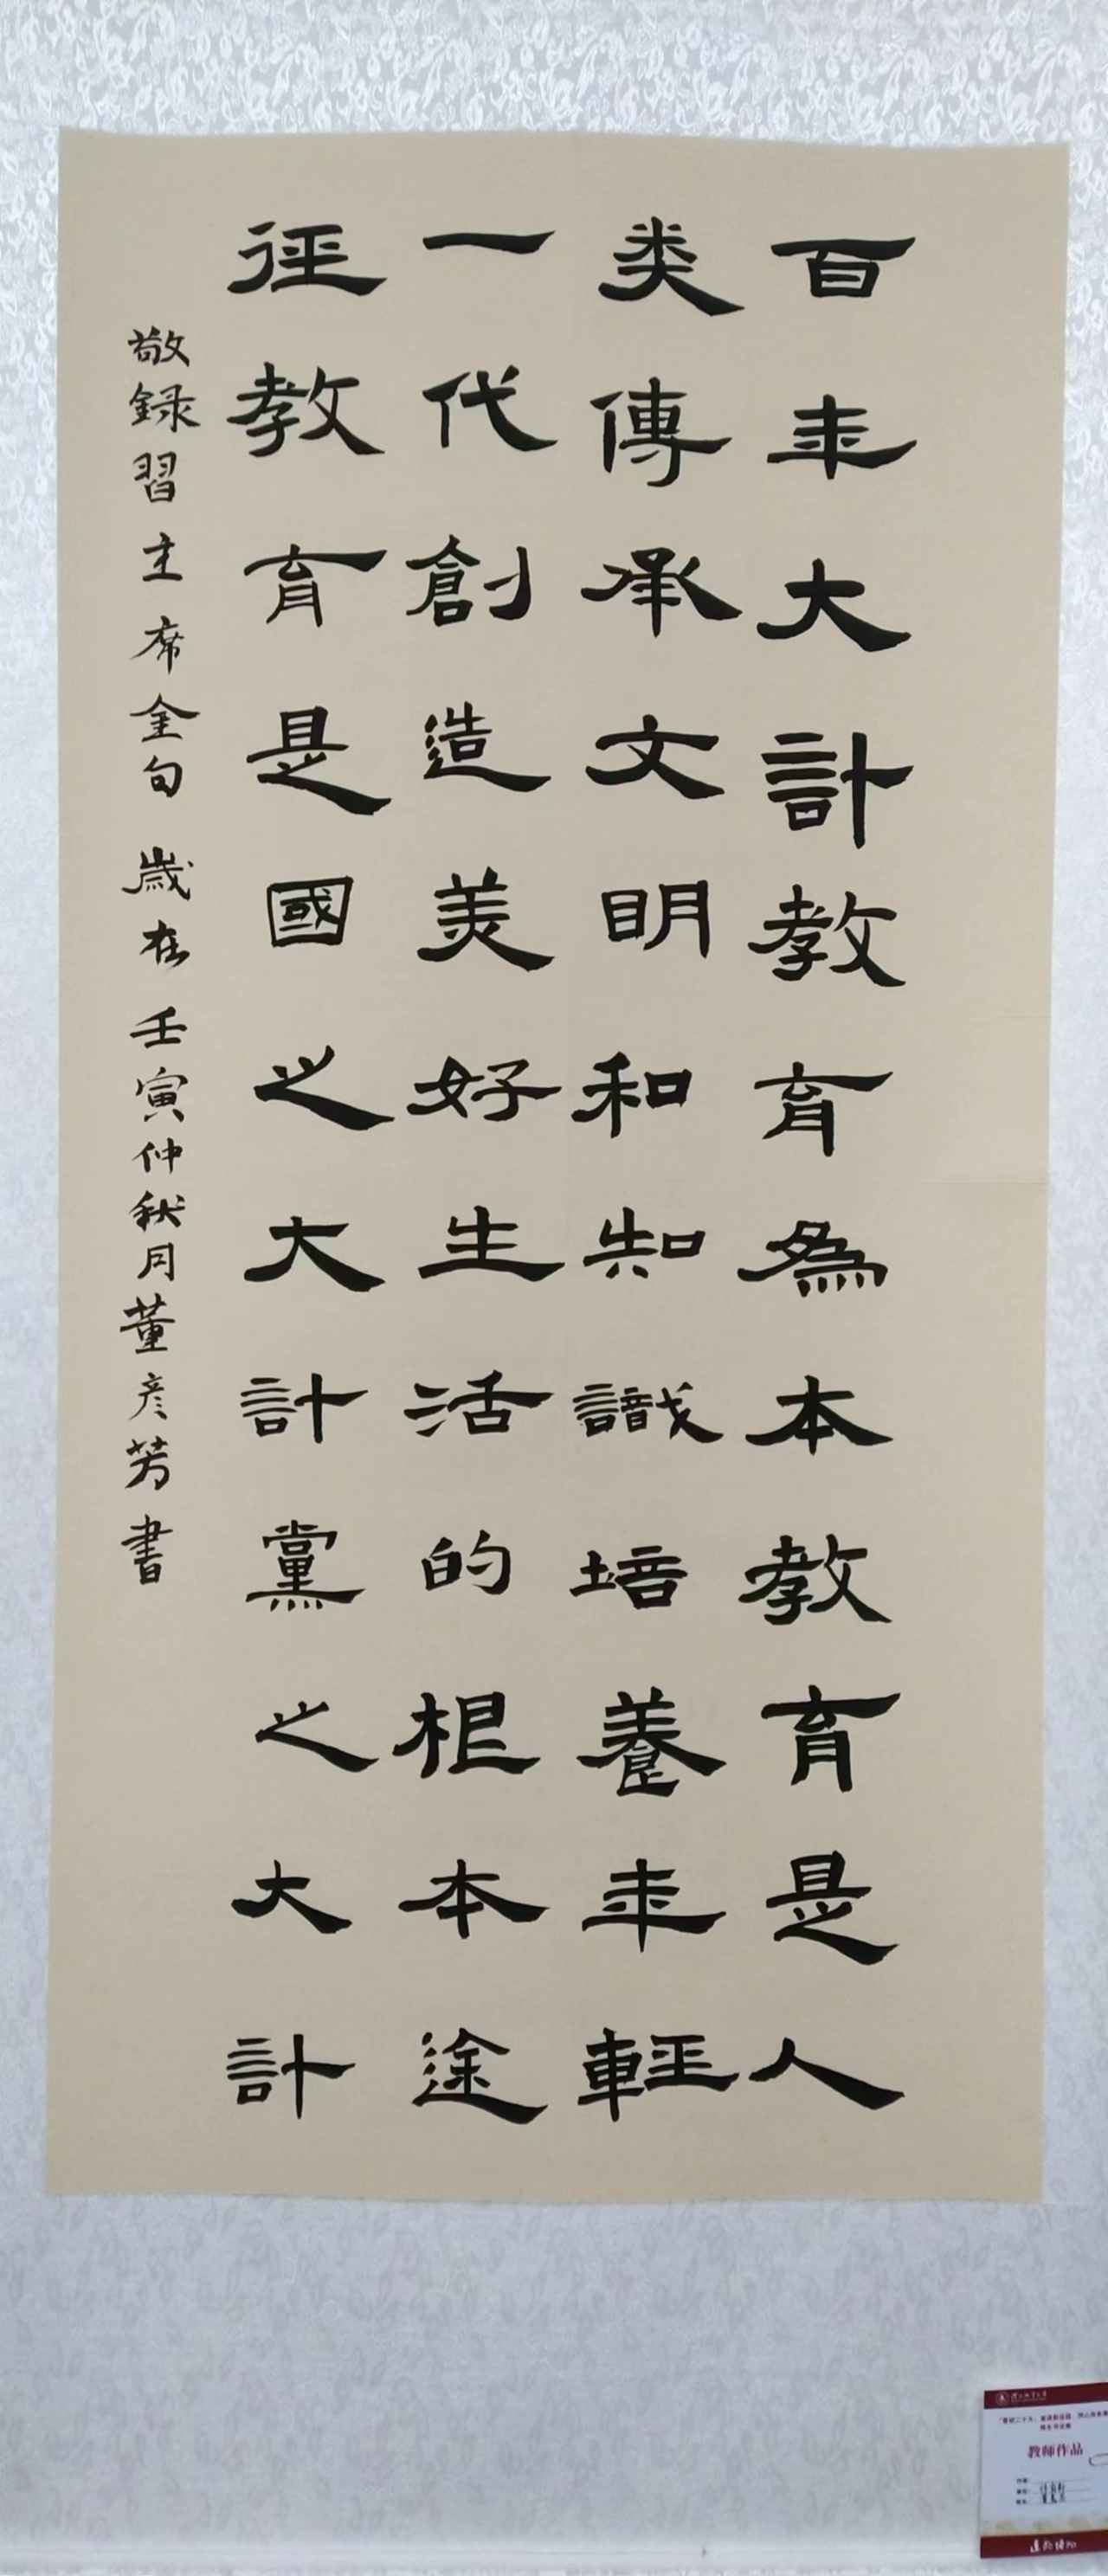 百年大計教育為本教育是人
类傳承文明和知識培養年輕
一代創造美好生活的根本途
徑教育是國之大計黨之大計
敬録習主席金句 歲在壬寅仲秋月董彦芳書
教師作品